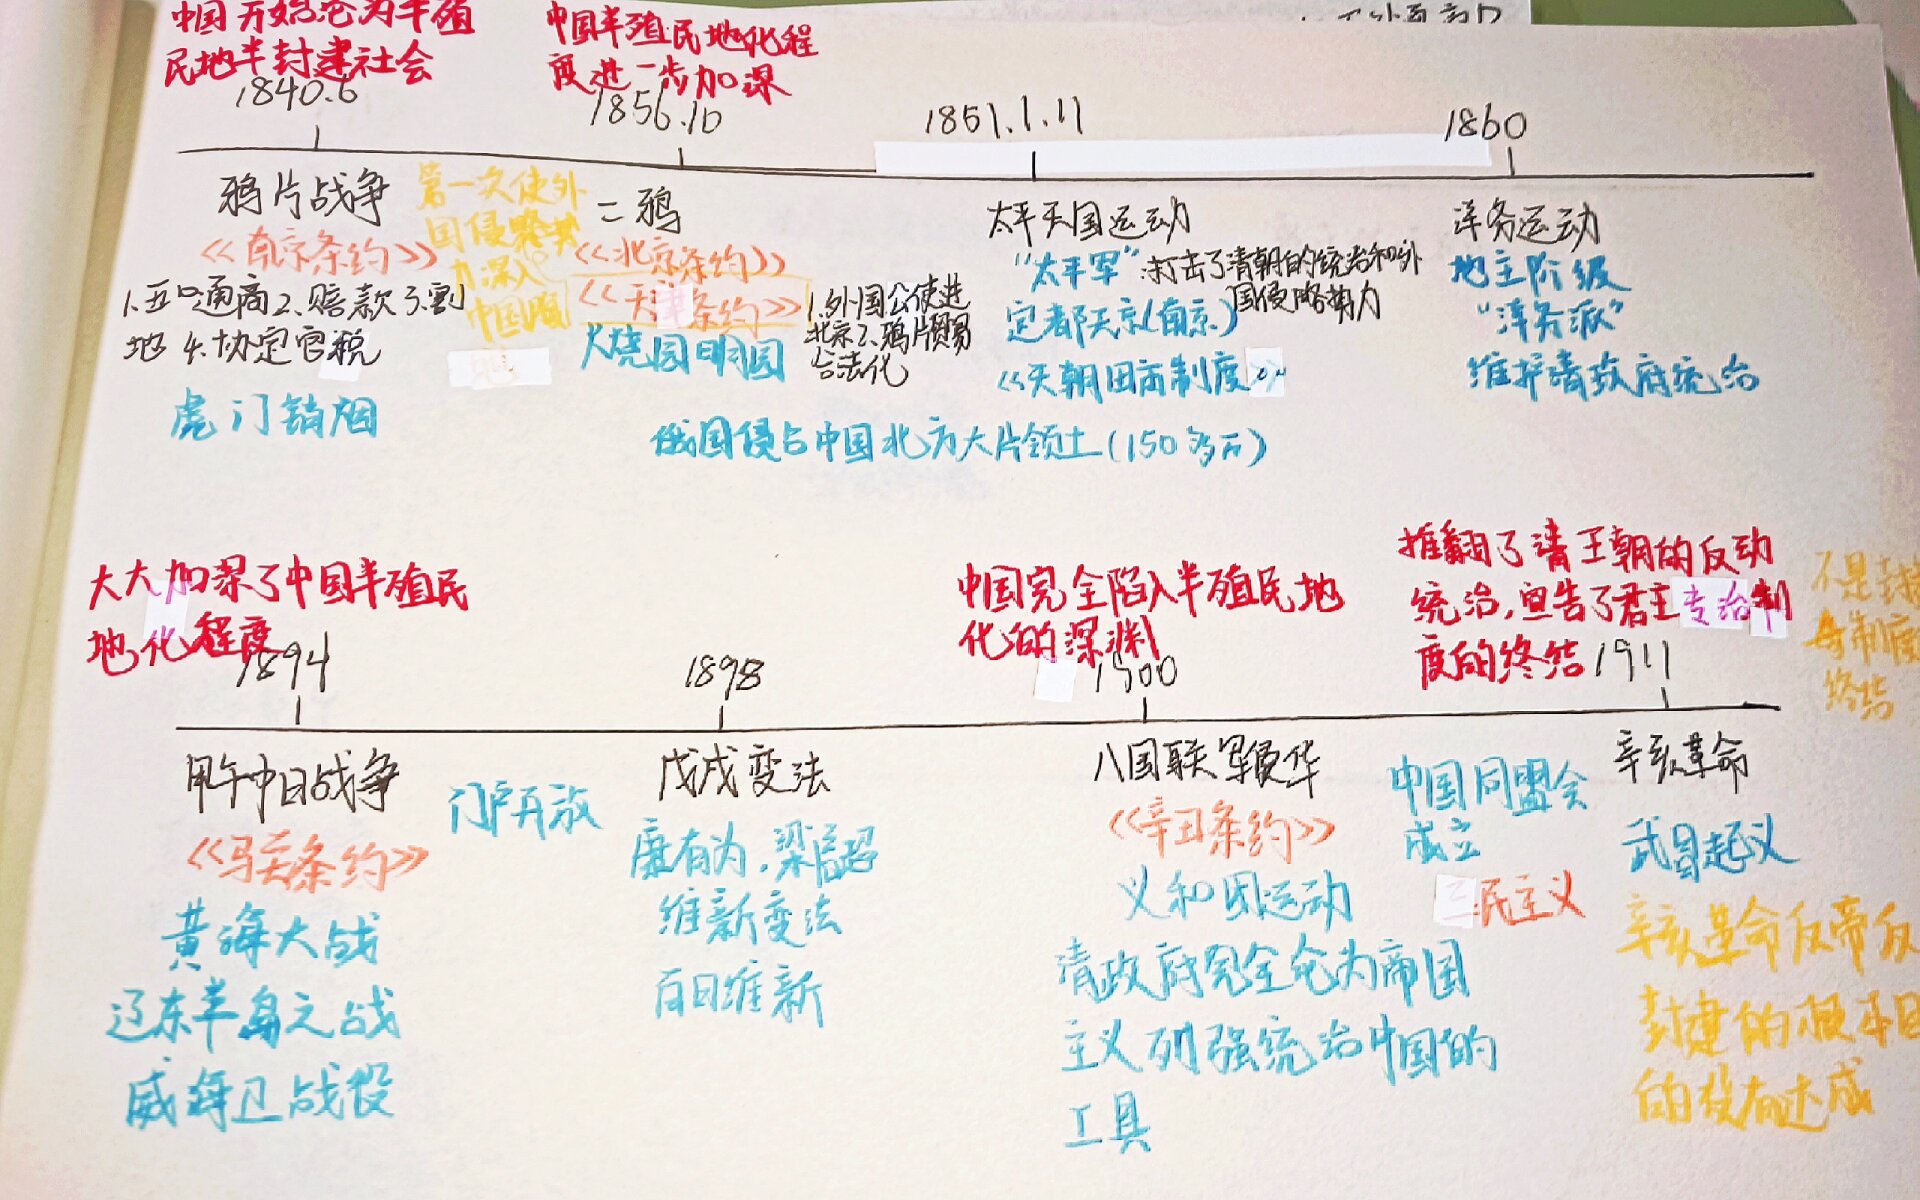 中国开始沦为半殖
民地半封建社会
1840.6
中国半殖民地化程
度进一步加深
1856.10
1851.1.11
1860
鸦片战争
《南京条约》
1.五口通商2.赔款3.割
地 4.协定官税
虎门销烟
第一次使外
国侵略势
力深入
中国腹
二鸦
《北京条约》
《天津条约》
火烧园明园
1.外国公使进
北京2.鸦片贸易
合法化
太平天国运动
"太平军":打击了清朝的统治和外
国侵略势力
定都天京(南京)
《天朝田亩制度》
洋务运动
地主阶级
"洋务派"
维护清政府统治
俄国侵占中国北方大片领土(150多万)
大大加深了中国半殖民
地化程度
1894
1898
中国完全陷入半殖民地
化的深渊
1900
推翻了清王朝的反动
统治,宣告了君主专治制
度的终结 1911
不是封建
制度
终结
甲午中日战争
《马关条约》
黄海大战
辽东半岛之战
威海卫战役
门户开放
戊戌变法
康有为,梁启超
维新变法
百日维新
八国联军侵华
《辛丑条约》
义和团运动
清政府完全沦为帝国
主义列强统治中国的
工具
中国同盟会
成立
三民主义
辛亥革命
武昌起义
辛亥革命反帝反
封建的根本目
的没有达成